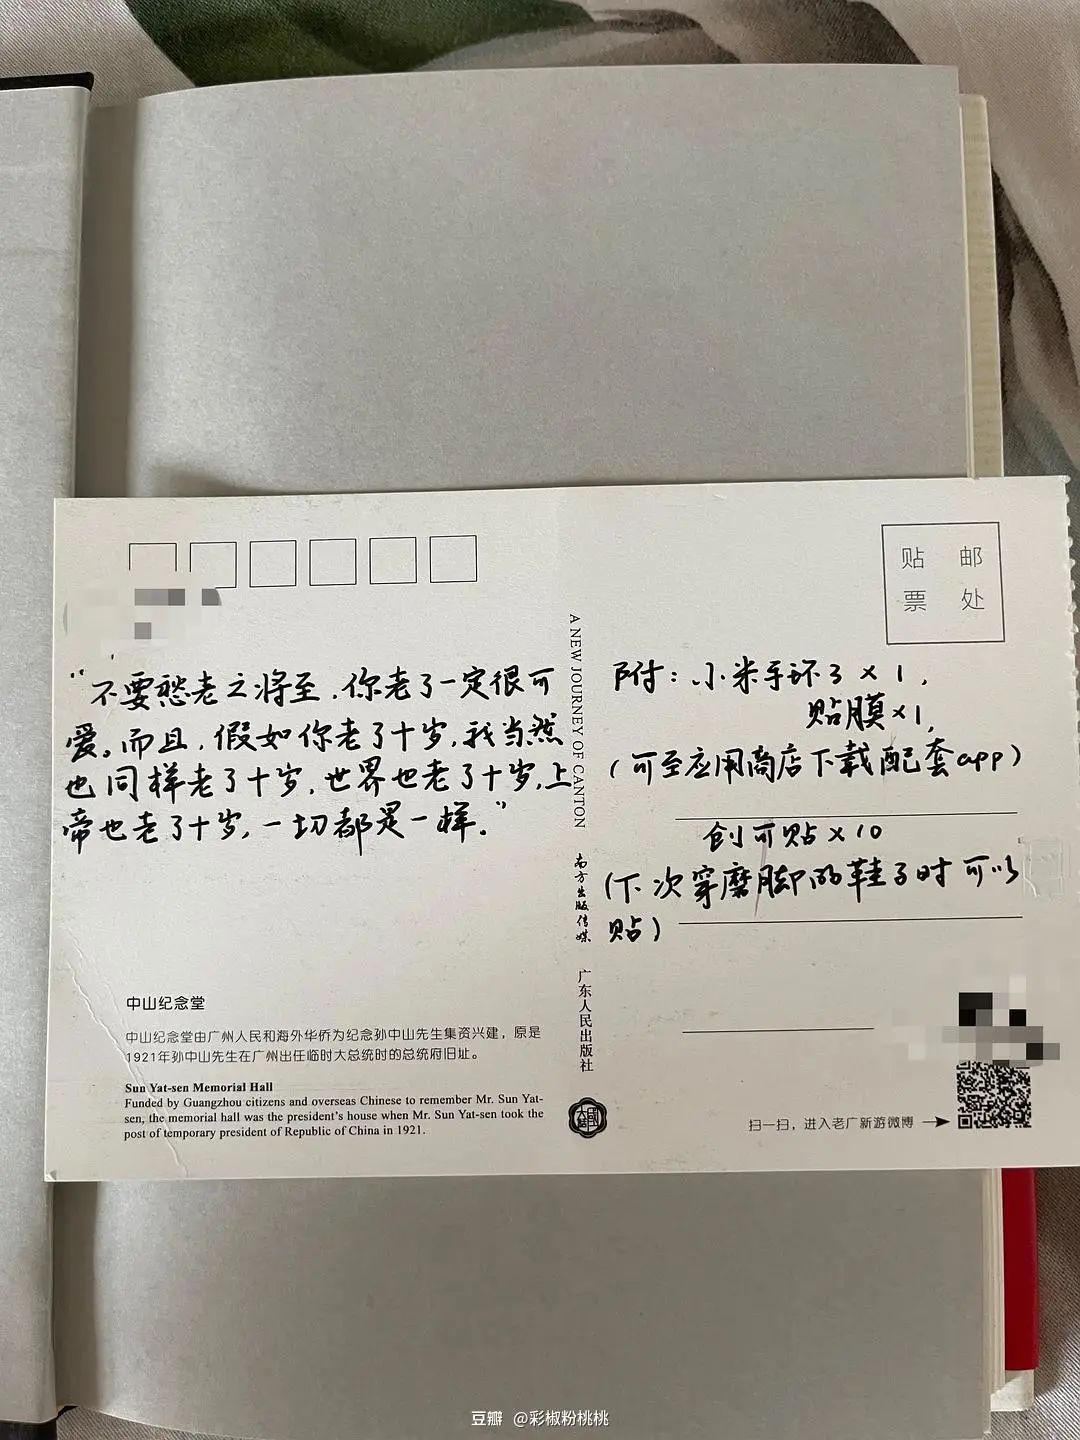 贴 邮
票 处
"不要愁老之将至,你老了一定很可
爱。而且,假如你老了十岁,我当然
也同样老了十岁,世界也老了十岁,上
帝也老了十岁,一切都是一样。"
中山纪念堂
中山纪念堂由广州人民和海外华侨为纪念孙中山先生集资兴建,原是
1921年孙中山先生在广州出任临时大总统时的总统府旧址。
Sun Yat-sen Memorial Hall
Funded by Guangzhou citizens and overseas Chinese to remember Mr. Sun Yat-
sen, the memorial hall was the president's house when Mr. Sun Yat-sen took the
post of temporary president of Republic of China in 1921.
A NEW JOURNEY OF CANTON
南方出版传媒
广东人民出版社
附:小米手环3×1,
贴膜×1,
(可至应用商店下载配套app)
创可贴×10
(下次穿磨脚的鞋子时可以
贴)
扫一扫,进入老广新游微博
豆瓣 @彩椒粉桃桃